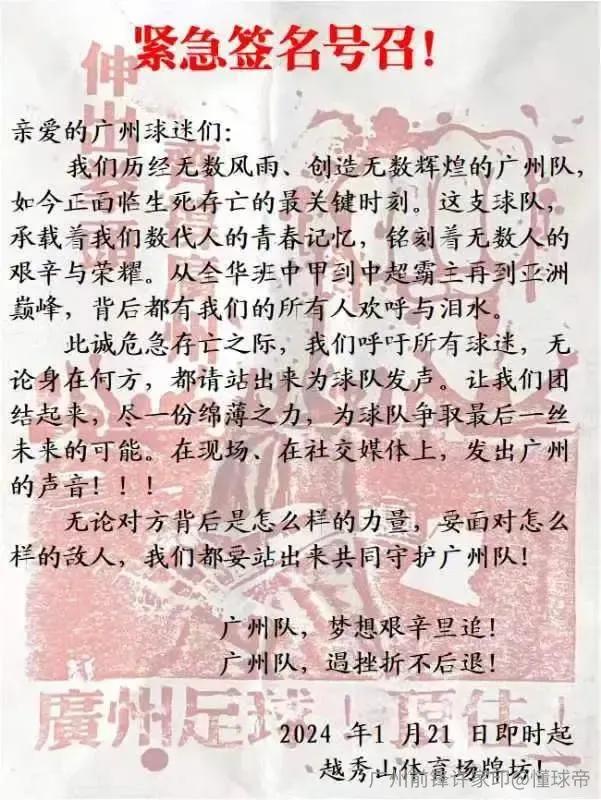 紧急签名号召！
亲爱的广州球迷们：
我们历经无数风雨、创造无数辉煌的广州队，
如今正面临生死存亡的最关键时刻。这支球队，
承载着我们数代人的青春记忆，铭刻着无数人的
艰辛与荣耀。从全华班中甲到中超霸主再到亚洲
巅峰，背后都有我们的所有人欢呼与泪水。
此诚危急存亡之际，我们呼吁所有球迷，无
论身在何方，都请站出来为球队发声。让我们团
结起来，尽一份绵薄之力，为球队争取最后一丝
未来的可能。在现场、在社交媒体上，发出广州
的声音！！！
无论对方背后是怎么样的力量，要面对怎么
样的敌人，我们都要站出来共同守护广州队！
广州队，梦想艰辛里追！
广州队，遏挫折不后退！
廣州足球！頂住！
2024 年1 月21 日即时起
越秀山体育场牌坊！
广州前锋许家印@懂球帝